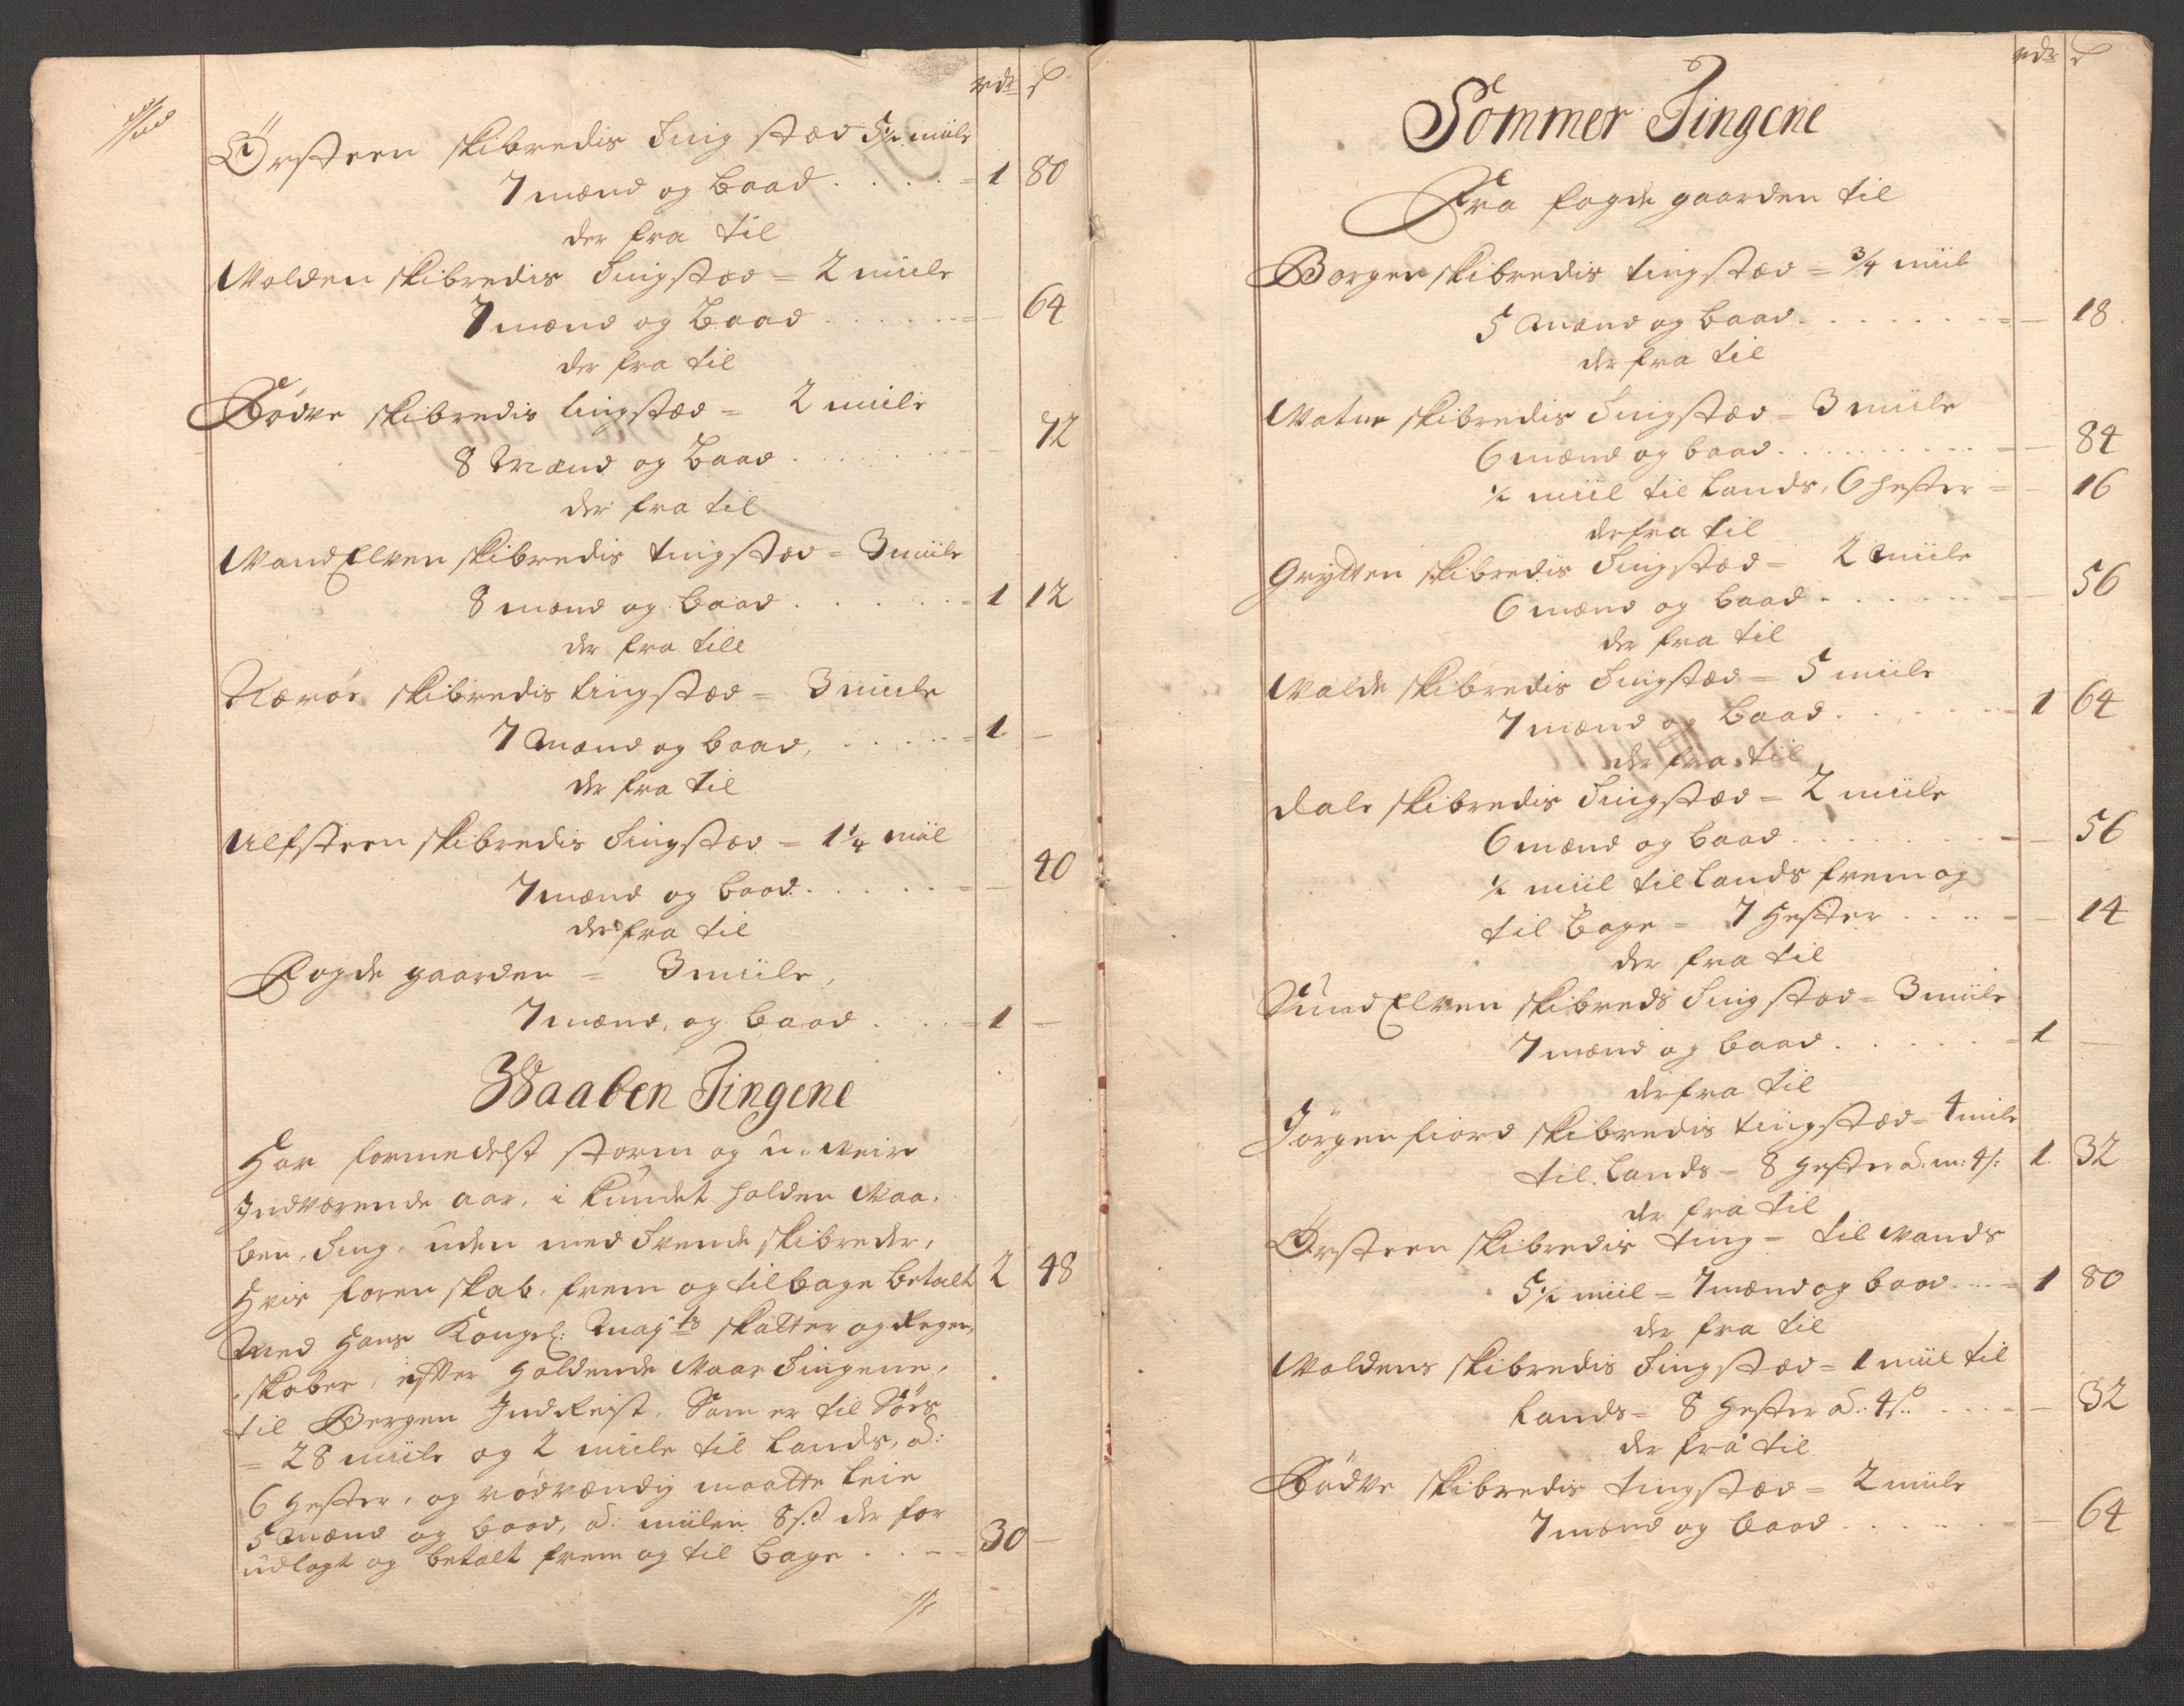 rdr ß
Ørsteen skibredis Ting stæd 5½ miile
7 mænd og baad . . . . = 1 80
der fra til
Wolden skibredis Tingstæd = 2 miile
7 mænd og baad . . . . . = — 64
der fra til
Rødve skibredis tingstæd = 2 miile
8 Mænd og baad . . . . . — 72
der fra til
WandElven skibredis tingstæd = 3 miile
8 mænd og baad . . . . . = 1 12
der fra till
Nærøe skibredis tingstæd = 3 miile
7 Mænd og baad, . . . . = 1 —
der fra til
Ulfsteen skibredis Tingstæd = 1¼ miil
7 mænd og baad . . . . . = — 40
der fra til
Fogde gaarden = 3 miile,
7 mænd, og baad . . . = 1 —
Waaben Tingene
Har formedelst storm og u-weir
Indværende aar, i kundet holden Waa,
ben, Ting, uden med Trende skibreder,
hvis foren skab, frem og tilbage betalt 2 48
Med Hans Kongel: Mayts skatter og Regen,
skaber, efter holdende Waar Tingene,
til Bergen IndReist, Som er til Søes
= 28 miile og 2 miile til Lands, a:
6 hester, og nødvændig maatte leie
5 Mænd og baad, a: miilen 8 ß der for
udlagt og betalt frem og til bage . . — = 30 —
rdr ß
Sommer Tingene
Fra fogde gaarden til
Borgen skibredis tingstæd = ¾ miil
5 Mænd og baad . . . . . . . = — 18
der fra til
Watne skibredis Tingstæd = 3 miile
6 mænd og baad . . . . . . . . = — 84
½ miil til Lands, 6 hester = — 16
der fra til
Grytten skibredis Tingstæd = 2 Miile
6 mænd og baad . . . . . . = — 56
der fra til
Walde skibredis Tingstæd = 5 miile
7 mænd og baad . . . . . = 1 64
der fra til
Dale skibredis Tingstæd = 2 miile
6 mænd og baad . . . . . . . = — 56
½ miil til Lands frem og
til bage = 7 hester . . . . = — 14
der fra til
SundElven skibreds Tingstæd = 3 miile
7 mænd og baad . . . . . = 1 —
der fra til
Jørgenfiord skibredis tingstæd = 4 miile
til Lands = 8 hester a: m: 4 ß: 1 32
der fra til
Ørsteen skibredis ting = til Wands
5½ miil = 7 mænd og baad . . . = 1 80
der fra til
Woldens skibredis Tingstæd = 1 miil til
Lands = 8 hester a: 4 ß: . . . . = — 32
der fra til
Rødve skibredis tingstæd = 2 miile
7 mænd og baad . . . . . . = — 64